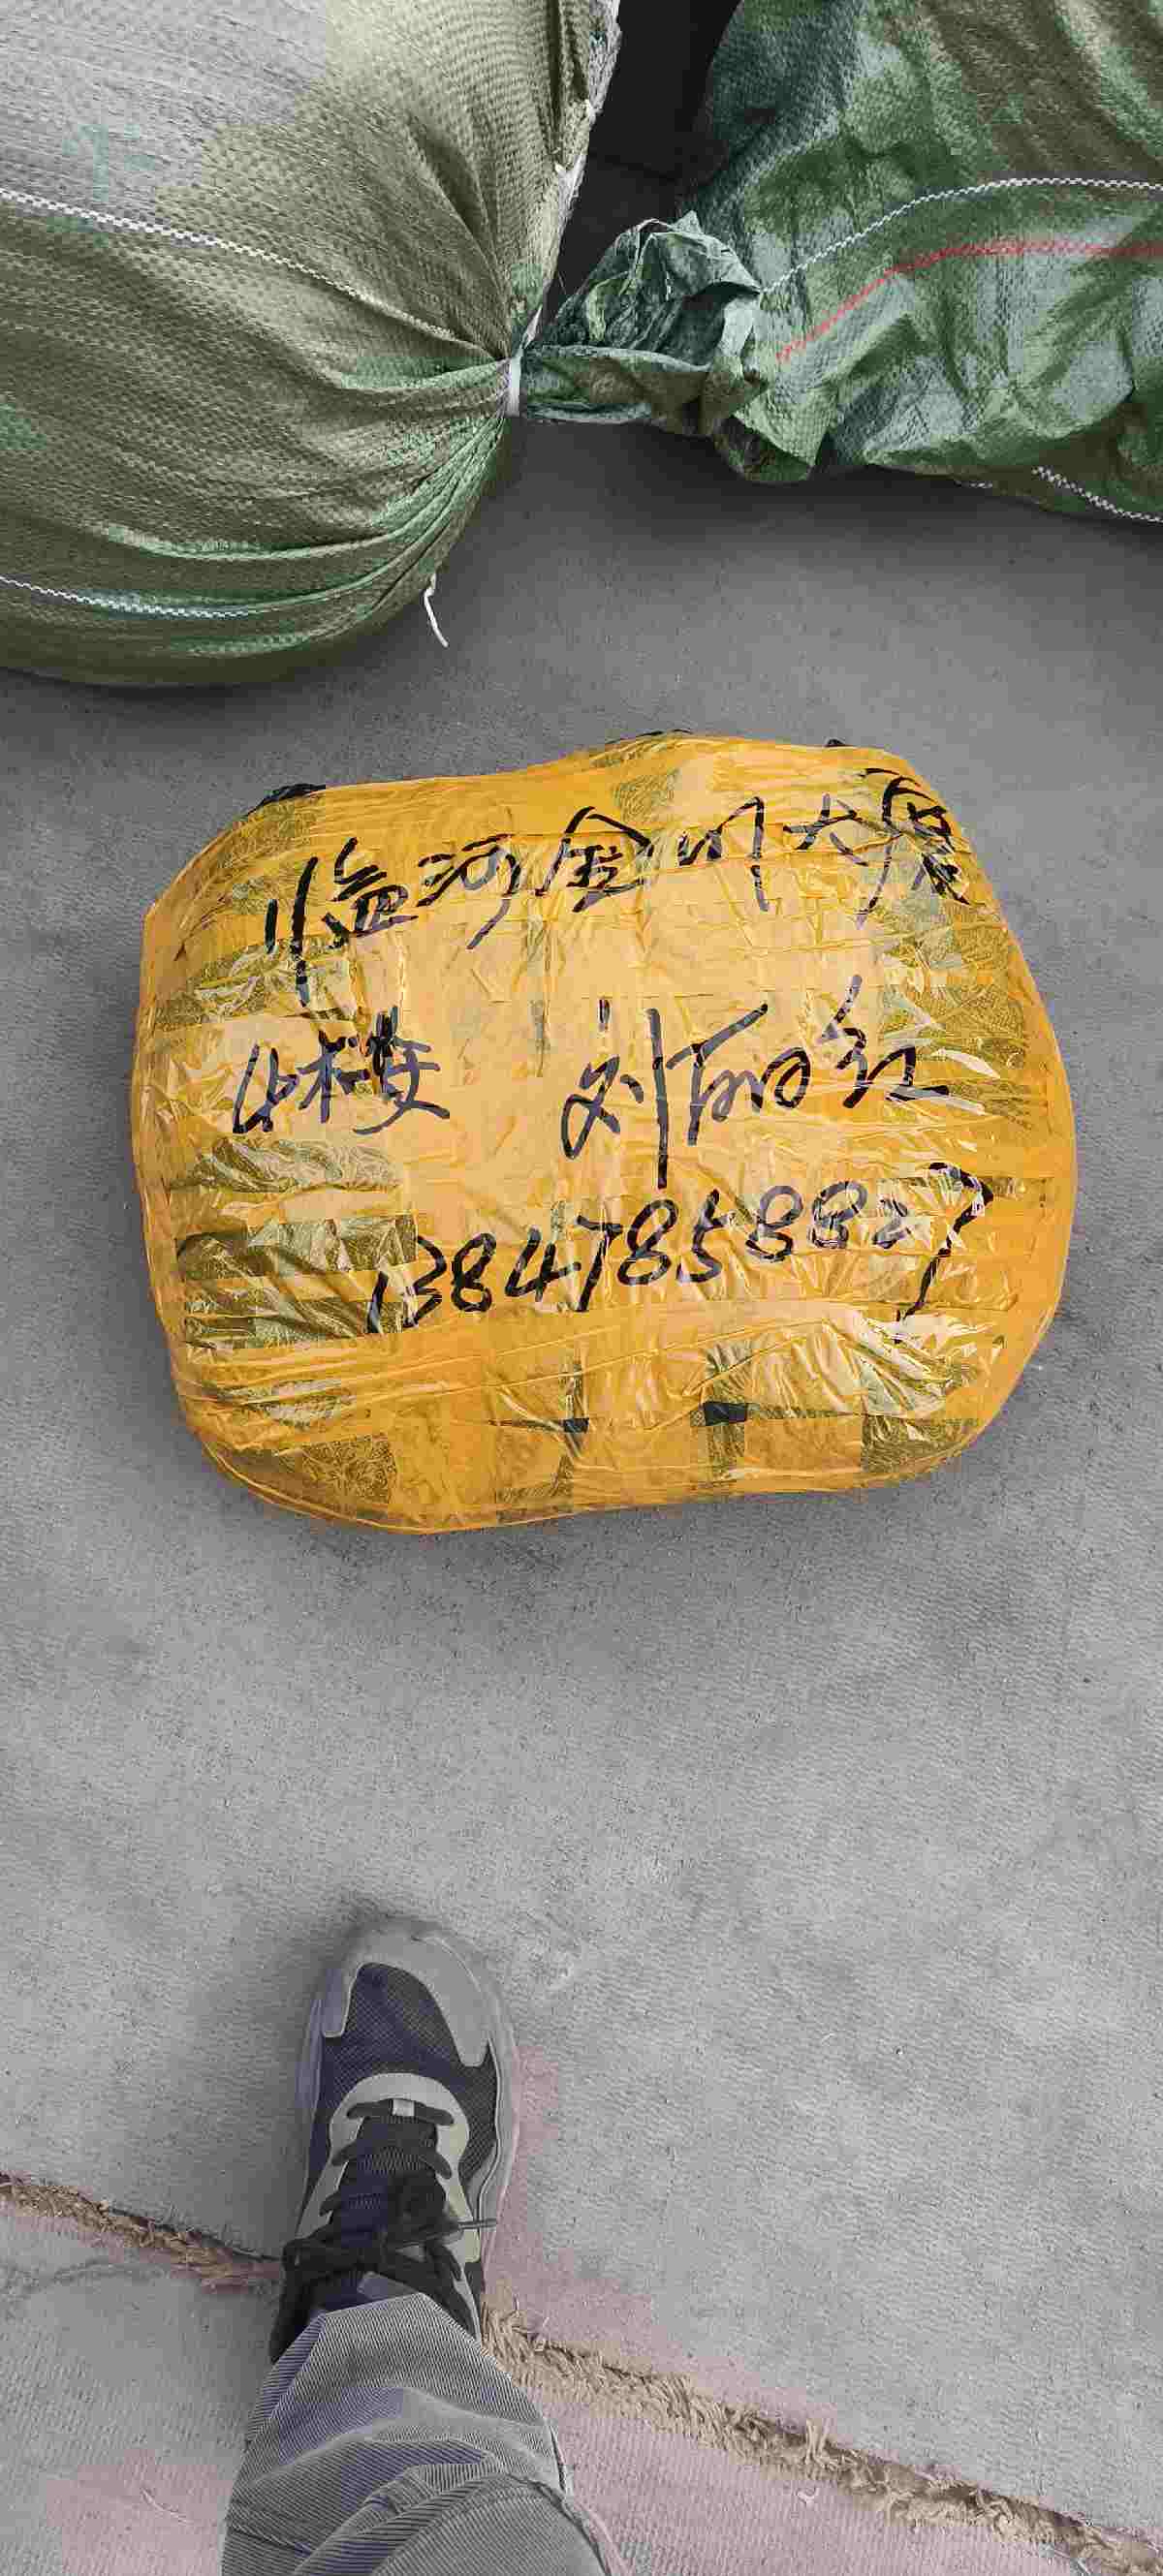 临河金川大厦
4楼 刘丽红
13847858827